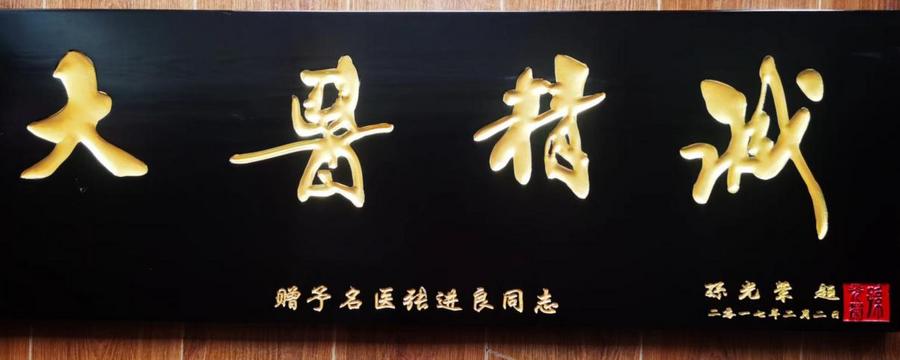 大醫精誠
赠予名医张进良同志
孫光榮 題
二零一七年二月二日